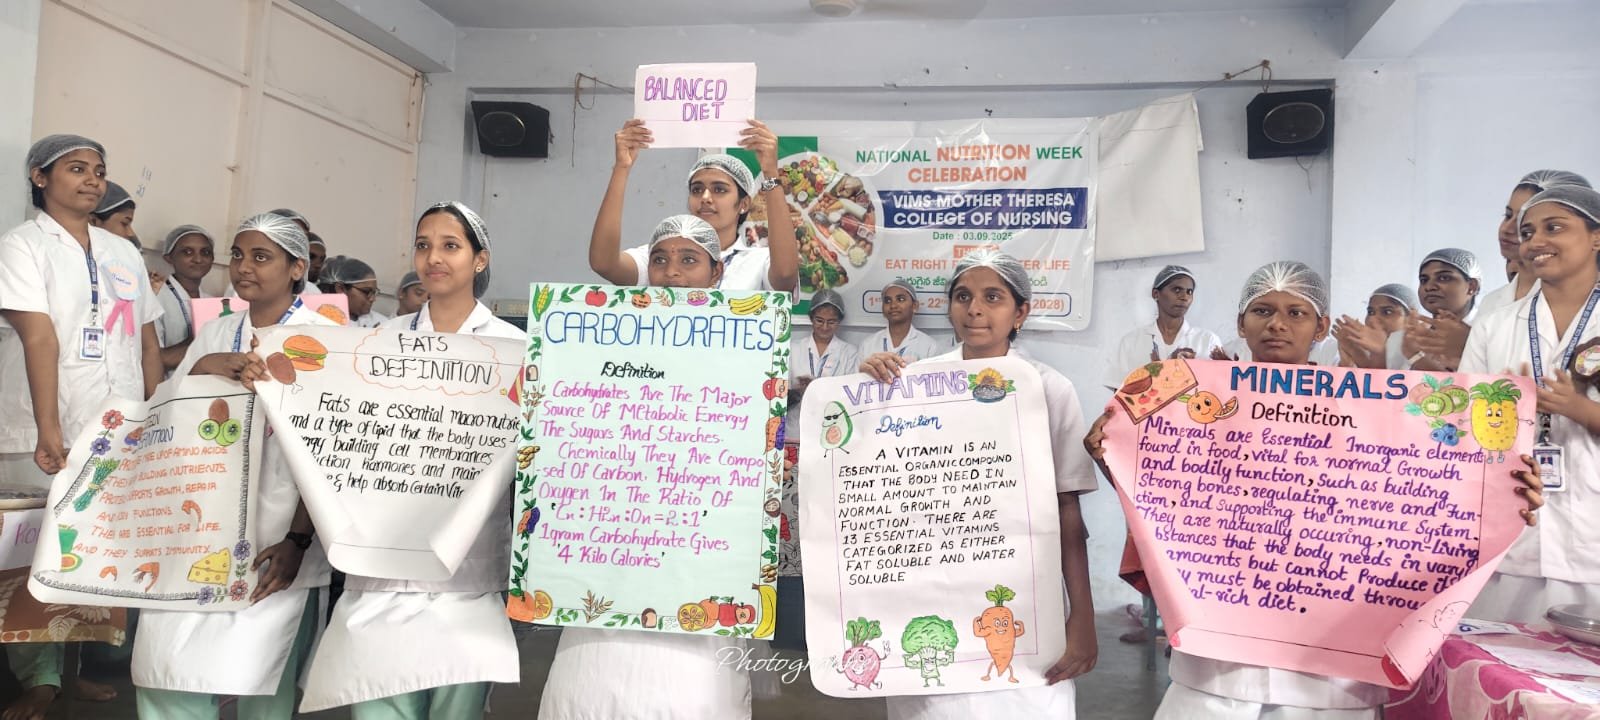 BALANCED
DIET
NATIONAL NUTRITION WEEK
CELEBRATION
VIMS MOTHER THERESA
COLLEGE OF NURSING
Date : 03.09.2025
EAT RIGHT LIFE
FATS
DEFINITION
Fats are essential macro-nutrie
and a type of lipid that the body uses
building cell membranes
hormones and
& help absorb Certain
DEFINITION
OF AMINO ACIDS
BUILDING NUTRIENTS.
SUPPORTS GROWTH, REPAIR
AND FUNCTIONS
THEY ARE ESSENTIAL FOR LIFE.
AND THEY SUPPORTS IMMUNITY
CARBOHYDRATES
Definition
Carbohydrates Are The Major
Source Of Metabolic Energy
The Sugars And Starches.
Chemically They Are Compo
-sed Of Carbon, Hydrogen And
Oxygen In The Ratio Of
'Cn : H2n : On = 2 : 1'
1gram Carbohydrate Gives
'4 Kilo Calories'
VITAMINS
Definition
A VITAMIN IS AN
ESSENTIAL ORGANIC COMPOUND
THAT THE BODY NEED IN
SMALL AMOUNT TO MAINTAIN
NORMAL GROWTH AND
FUNCTION. THERE ARE
13 ESSENTIAL VITAMINS
CATEGORIZED AS EITHER
FAT SOLUBLE AND WATER
SOLUBLE
MINERALS
Definition
Minerals are Essential Inorganic elements
found in food, vital for normal Growth
and bodily function, Such as building
Strong bones, regulating nerve and Fun-
ction, and Supporting the immune System.
They are naturally occuring, non-living
bstances that the body needs in vary
amounts but cannot Produce it
must be obtained throu
-rich diet.
Photographer